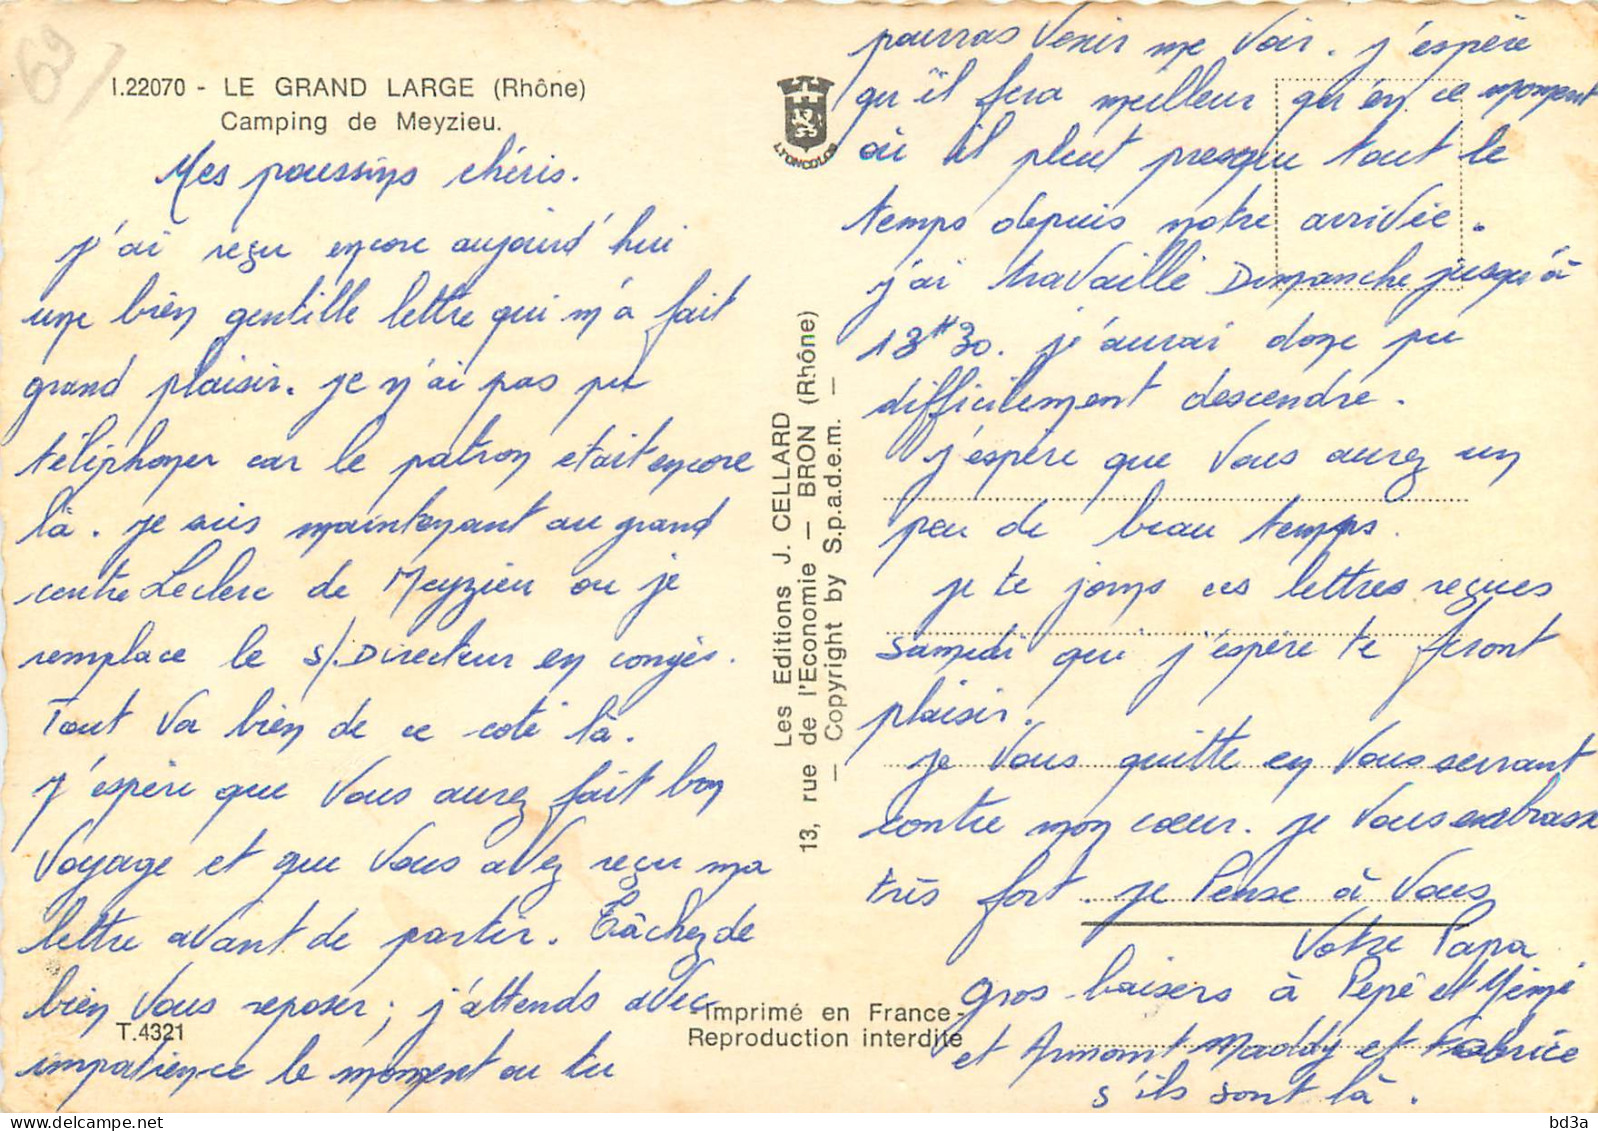 69
I.22070 - LE GRAND LARGE (Rhône)
Camping de Meyzieu.
Mes poussins chéris.
j'ai reçu encore aujourd'hui
une bien gentille lettre qui m'a fait
grand plaisir. je n'ai pas pu
téléphoner car le patron etait encore
là. je suis maintenant au grand
centre Leclerc de Meyzieu ou je
remplace le s/.Directeur en congés.
Tout va bien de ce coté là.
j'espère que vous aurez fait bon
voyage et que vous avez reçu ma
lettre avant de partir. Tâchez de
bien vous reposer; j'attends avec
impatience le moment ou tu
T.4321
LYONCOLOR
Les Editions J. CELLARD
13, rue de l'Economie — BRON (Rhône)
— Copyright by S.p.a.d.e.m. —
-Imprimé en France-
Reproduction interdite
pourras venir me voir. j'espère
qu'il fera meilleur qu'en ce moment
où il pleut presque tout le
temps depuis notre arrivée.
j'ai travaillé Dimanche jusqu'à
13H30. je n'aurai donc pu
difficilement descendre.
j'espère que vous aurez un
peu de beau temps.
je te joins ces lettres reçues
samedi qui j'espère te feront
plaisir.
je vous quitte en vous serrant
contre mon cœur. je vous embrasse
très fort. je Pense à Vous
Votre Papa
gros baisers à Pépé et Mémé
et Armont Maddy et Fabrice
s'ils sont là.
bd3a